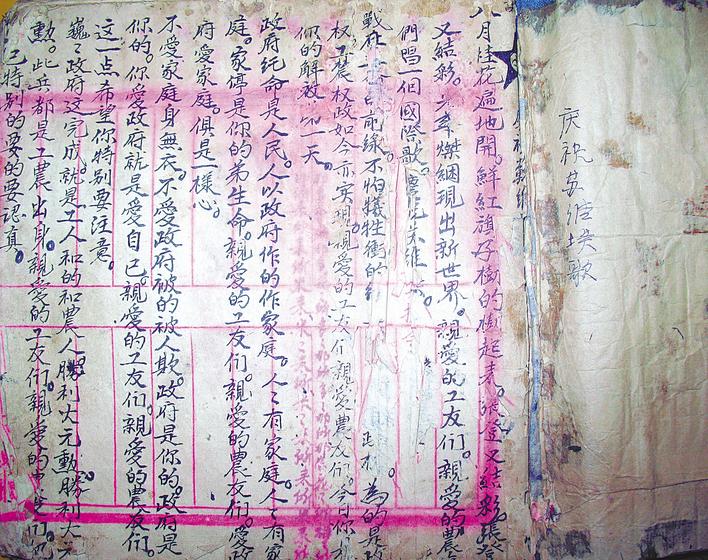 庆祝苏维埃歌
八月桂花遍地開。鮮紅旗子樹的樹起来。張登又結彩張登
又結彩。光華燦現出新世界。親愛的工友们。親愛的農
們唱一個國際歌。慶祝苏維
戰在一的前線。不怕犧牲衝的 為的是政
权。工農权政如今亦实現。親愛的工友们親愛農友们。今日你
你的解救。的一天。
政府纥命是人民。人以政府作的作家庭。人々有家庭人々有家
庭。家停是你的弟生命。親愛的工友们。親愛的農友们。愛政
府愛家庭。俱是一樣心。
不愛家庭身無衣。不愛政府被的被人欺。政府是你的。政府是
你的。你愛政府就是愛自己。親愛的工友们。親愛的農友们。
這一点希望你特别要注意。
巍々政府这完成。就是工人和的和農人。勝利大元動勝利大元
勲。此兵都是工農出身。親愛的工友们。親愛的
已特别的要的要認真。